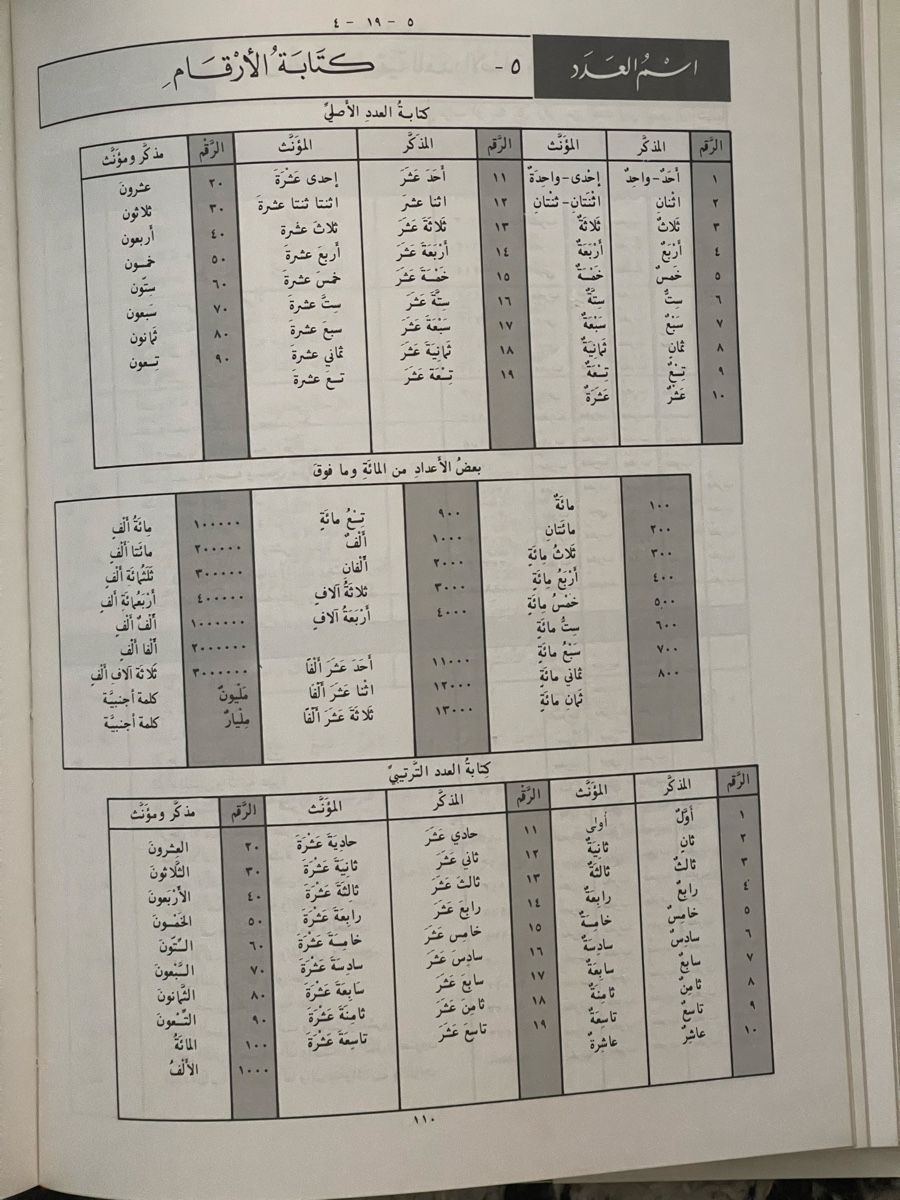 ٥ - ١٩ - ٤
اسْمُ العَدَد ٥- كتَابَةُ الأرْقَامِ
كتابةُ العددِ الأصليِّ
الرَّقم المذكَّر المؤنَّث الرَّقم المذكَّر المؤنَّث الرَّقْم مذكَّر ومؤنَّث
١ أَحَدٌ-واحِدٌ إحْدى-واحِدَةٌ ١١ أَحَدَ عَشَرَ إحدى عَشْرَةَ ٢٠ عشرونَ
٢ اثْنانِ اثْنَتَانِ-ثْنتَانِ ١٢ اثنا عشَرَ اثنتا ثنتا عشرةَ ٣٠ ثلاثون
٣ ثلاثٌ ثلاثَةٌ ١٣ ثلاثَةَ عَشَرَ ثلاثَ عشْرة ٤٠ أربعون
٤ أَرْبَعٌ أَرْبَعَةٌ ١٤ أَرْبَعَةَ عَشَرَ أربعَ عشرةَ ٥٠ خمسون
٥ خَمسٌ خَمْسَةٌ ١٥ خَمْسَةَ عَشَرَ خمسَ عشرةَ ٦٠ ستون
٦ ستٌّ ستَّةٌ ١٦ ستَّةَ عَشَرَ ستَّ عشرةَ ٧٠ سبعون
٧ سَبْعٌ سَبْعَةٌ ١٧ سَبْعَةَ عَشَرَ سبعَ عشرةَ ٨٠ ثمانون
٨ ثمانٍ ثمانِيَةٌ ١٨ ثمانِيَةَ عَشَرَ ثماني عشرةَ ٩٠ تسعون
٩ تِسْعٌ تِسْعَةٌ ١٩ تِسْعَةَ عَشَرَ تسعَ عشرةَ
١٠ عَشْرٌ عَشَرَةٌ
بعضُ الأعدادِ من المائَةِ وما فوقَ
١٠٠ مائَةٌ ٩٠٠ تِسْعُ مائَةٍ ١٠٠٠٠٠ مِائَةُ أَلْفٍ
٢٠٠ مائَتانِ ١٠٠٠ أَلْفٌ ٢٠٠٠٠٠ مائتا ألْفٍ
٣٠٠ ثلاثُ مائَةٍ ٢٠٠٠ أَلْفانِ ٣٠٠٠٠٠ ثَلَثُمائَة ألْفٍ
٤٠٠ أَرْبَعُ مائَةٍ ٣٠٠٠ ثلاثَةُ آلافٍ ٤٠٠٠٠٠ أَرْبَعُمائَةِ ألفٍ
٥٠٠ خَمْسُ مِائَةٍ ٤٠٠٠ أَرْبَعَةُ آلافٍ ١٠٠٠٠٠٠ أَلْفُ ألْفٍ
٦٠٠ ستُّ مائَةٍ ٢٠٠٠٠٠٠ أَلْفا ألْفٍ
٧٠٠ سَبْعُ مائَةٍ ١١٠٠٠ أَحَدَ عَشَرَ أَلْفًا ٣٠٠٠٠٠٠ ثلاثة آلافِ ألْفٍ
٨٠٠ ثماني مائَةٍ ١٢٠٠٠ اثْنا عَشَرَ أَلْفا مَلْيونٌ كلمة أجنبيَّة
ثمانِ مائَةٍ ١٣٠٠٠ ثلاثَةَ عَشَرَ ألْفًا مِلْيارٌ كلمة أجنبيَّة
كِتابةُ العدد التَّرتيبيِّ
الرَّقم المذكَّر المؤنَّث الرَّقْم المذكَّر المؤنَّث الرَّقم مذكَّر ومؤنَّث
١ أوَّلٌ أولى ١١ حادي عَشَرَ حاديَةَ عَشْرَةَ ٢٠ العِشرونَ
٢ ثانٍ ثانِيَةٌ ١٢ ثاني عَشَرَ ثانِيَةَ عَشْرَةَ ٣٠ الثَّلاثونَ
٣ ثالثٌ ثالثَةٌ ١٣ ثالثَ عَشَرَ ثالثَةَ عَشْرَةَ ٤٠ الأرْبَعونَ
٤ رابِعٌ رابعَةٌ ١٤ رابِعَ عَشَرَ رابعَةَ عَشْرَةَ ٥٠ الخَمْسونَ
٥ خامِسٌ خامِسَةٌ ١٥ خامِسَ عَشَرَ خامِسَةَ عَشْرَةَ ٦٠ السِّتّونَ
٦ سادِسٌ سادِسَةٌ ١٦ سادِسَ عَشَرَ سادِسَةَ عَشْرَةَ ٧٠ السَّبْعونَ
٧ سابِعٌ سابعَةٌ ١٧ سابعَ عَشَرَ سَابِعَةَ عَشْرَةَ ٨٠ الثَّمانونَ
٨ ثامِنٌ ثامِنَةٌ ١٨ ثامِنَ عَشَرَ ثامِنَةَ عَشْرَةَ ٩٠ التِّسْعونَ
٩ تاسعٌ تاسِعَةٌ ١٩ تاسِعَ عَشَرَ تاسِعَةَ عَشْرَةَ ١٠٠ المائَةُ
١٠ عاشِرٌ عاشِرةٌ ١٠٠٠ الألْفُ
١١٠